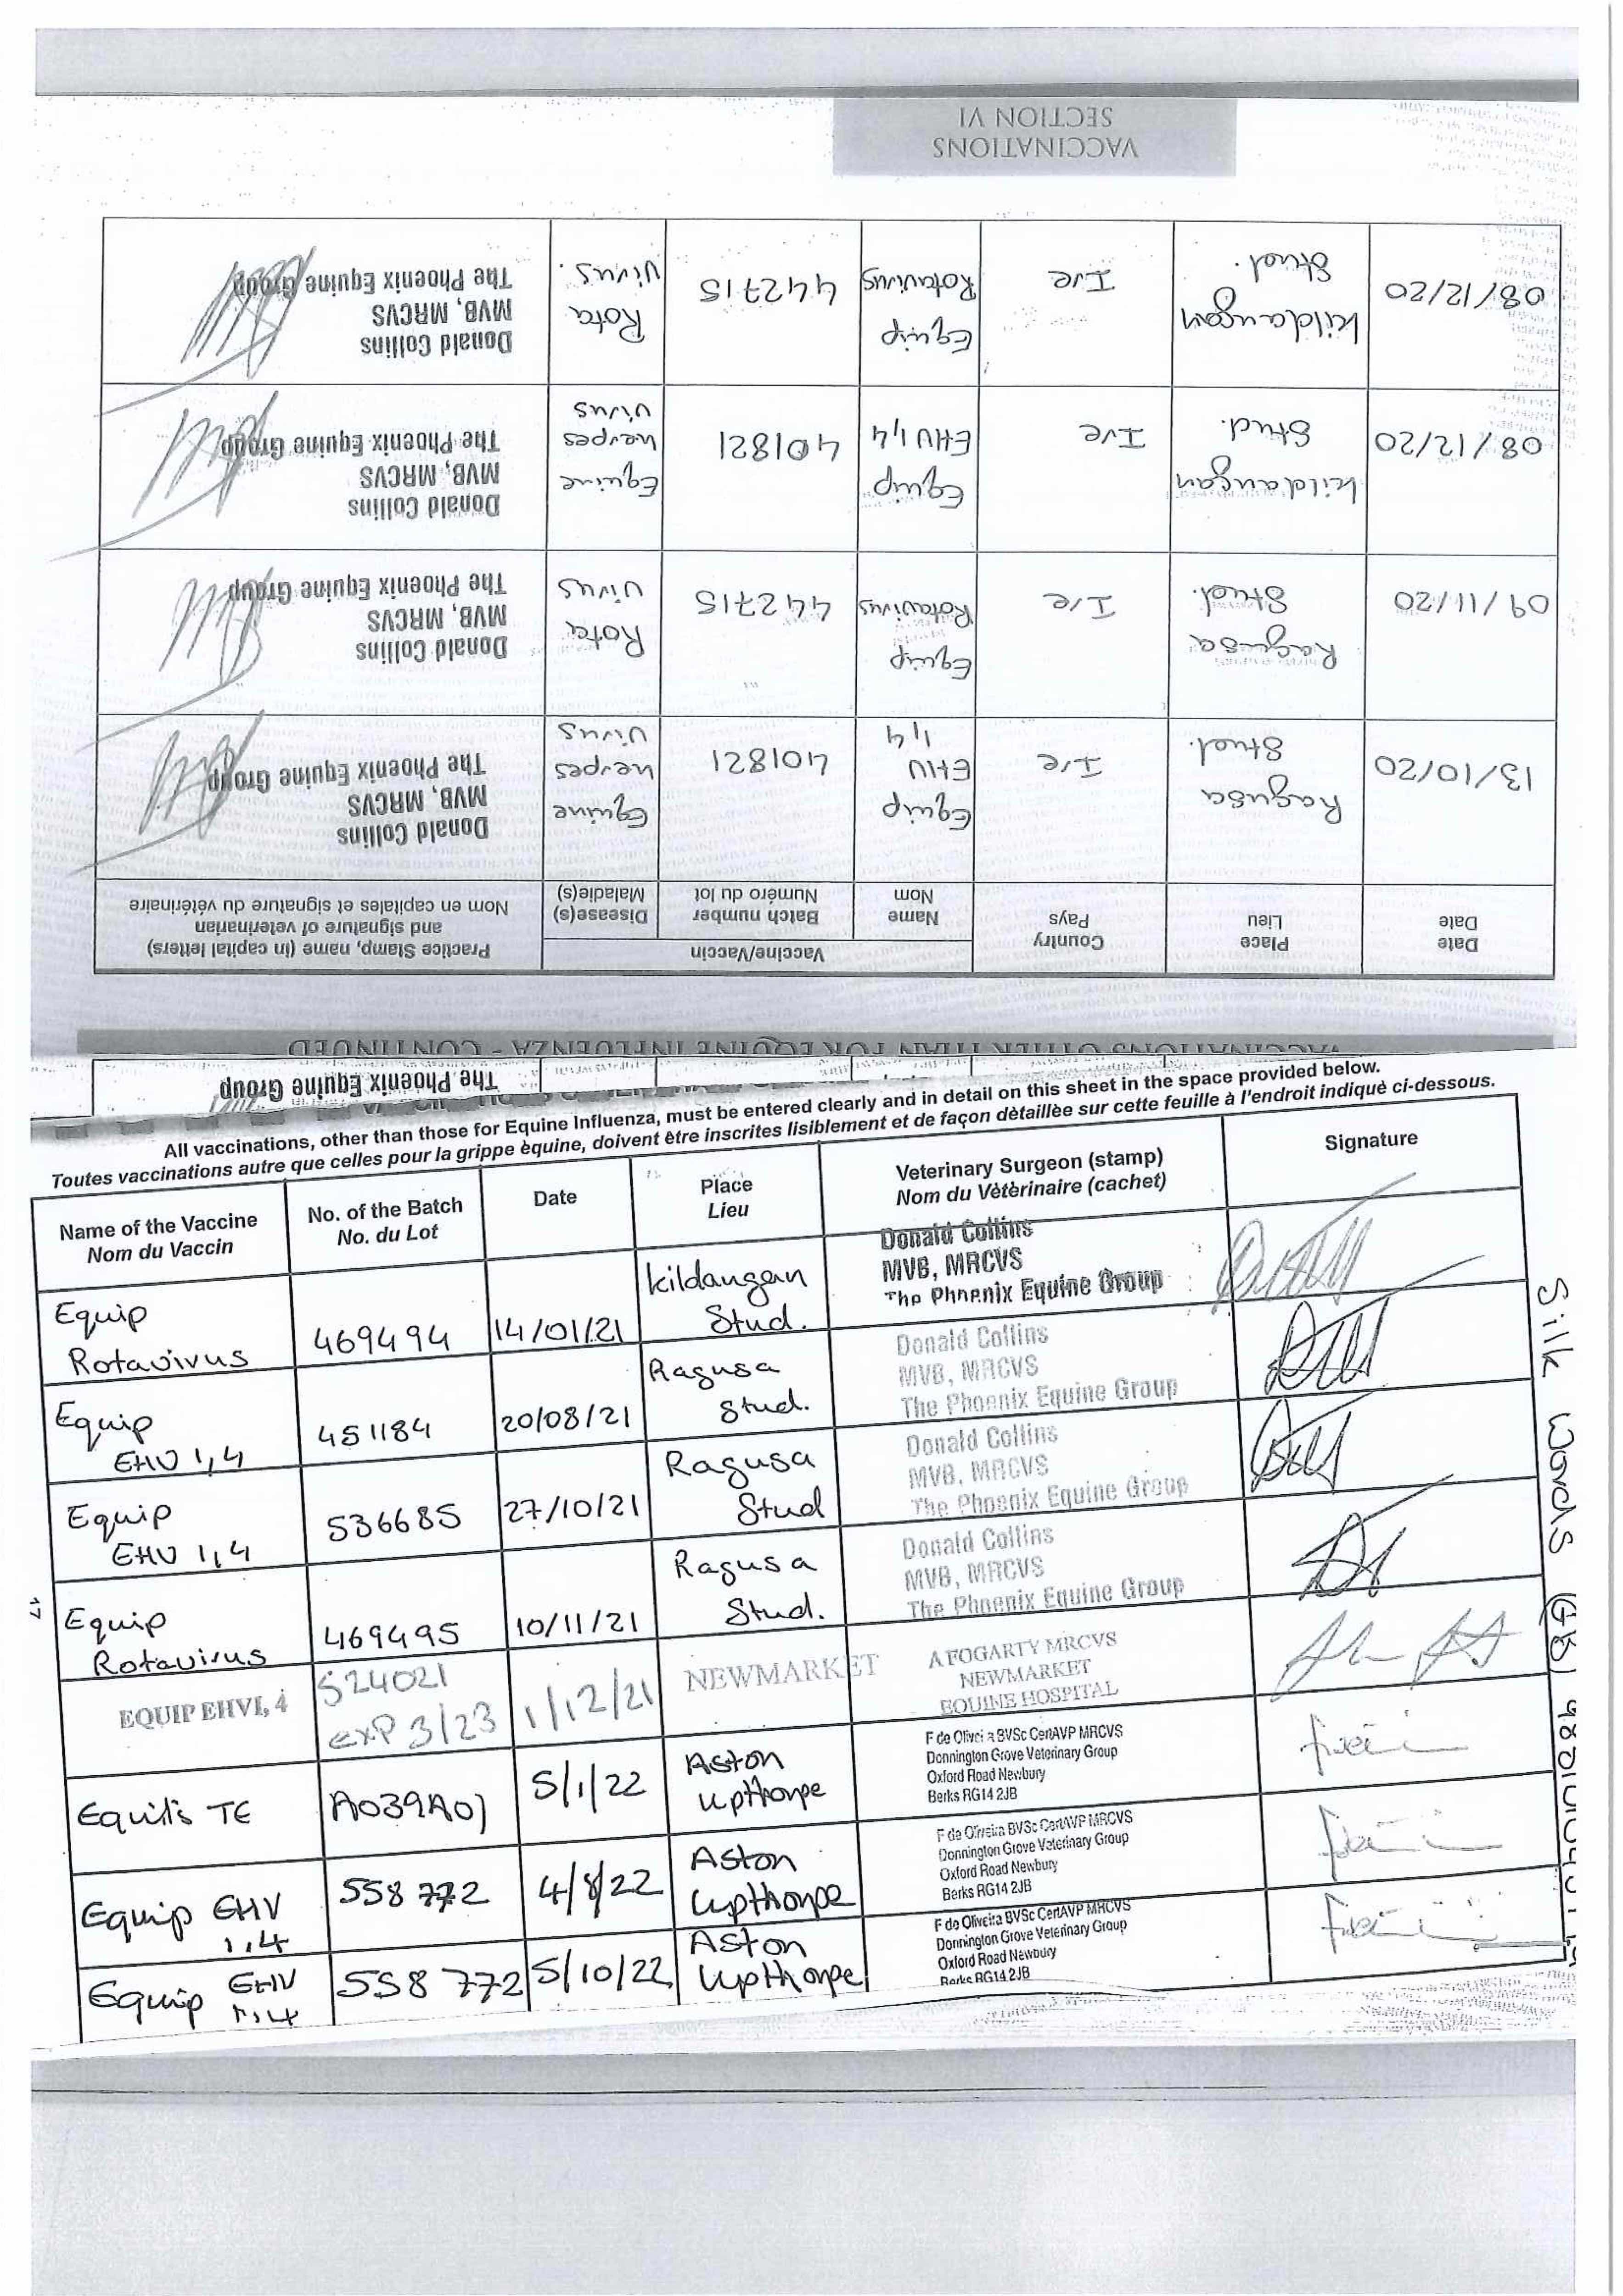 VACCINATIONS
SECTION VI
VACCINATIONS OTHER THAN FOR EQUINE INFLUENZA - CONTINUED
Date Date
Place Lieu
Country Pays
Vaccine/Vaccin
Name Nom
Batch number Numéro du lot
Disease(s) Maladie(s)
Practice Stamp, name (in capital letters) and signature of veterinarian
Nom en capitales et signature du vétérinaire
13/10/20 Ragusa Stud. Ire Equip EHV 1,4 401821 Equine Herpes Virus Donald Collins MVB, MRCVS The Phoenix Equine Group
09/11/20 Ragusa Stud. Ire Equip Rotavirus 442715 Rota Virus Donald Collins MVB, MRCVS The Phoenix Equine Group
08/12/20 Kildangan Stud. Ire Equip EHV 1,4 401821 Equine Herpes Virus Donald Collins MVB, MRCVS The Phoenix Equine Group
08/12/20 Kildangan Stud. Ire Equip Rotavirus 442715 Rota Virus. Donald Collins MVB, MRCVS The Phoenix Equine Group
The Phoenix Equine Group
All vaccinations, other than those for Equine Influenza, must be entered clearly and in detail on this sheet in the space provided below.
Toutes vaccinations autre que celles pour la grippe èquine, doivent ètre inscrites lisiblement et de façon dètaillèe sur cette feuille à l'endroit indiquè ci-dessous.
Name of the Vaccine Nom du Vaccin
No. of the Batch No. du Lot
Date
Place Lieu
Veterinary Surgeon (stamp) Nom du Vètèrinaire (cachet)
Signature
Equip Rotavirus 469494 14/01/21 Kildangan Stud. Donald Collins MVB, MRCVS The Phoenix Equine Group
Equip EHV 1,4 451184 20/08/21 Ragusa Stud. Donald Collins MVB, MRCVS The Phoenix Equine Group
Equip EHV 1,4 536685 27/10/21 Ragusa Stud Donald Collins MVB, MRCVS The Phoenix Equine Group
Equip Rotavirus 469495 10/11/21 Ragusa Stud. Donald Collins MVB, MRCVS The Phoenix Equine Group
EQUIP EHV1, 4 524021 exP 3/23 1/12/21 NEWMARKET A FOGARTY MRCVS NEWMARKET EQUINE HOSPITAL
Equilis TE A039A0J 5/1/22 Aston Upthorpe F de Oliveira BVSc CertAVP MRCVS Donnington Grove Veterinary Group Oxford Road Newbury Berks RG14 2JB
Equip EHV 1,4 558772 4/8/22 Aston Upthorpe F de Oliveira BVSc CertAVP MRCVS Donnington Grove Veterinary Group Oxford Road Newbury Berks RG14 2JB
Equip EHV 1,4 558772 5/10/22 Aston Upthorpe F de Oliveira BVSc CertAVP MRCVS Donnington Grove Veterinary Group Oxford Road Newbury Berks RG14 2JB
17
Silk Words (GB)